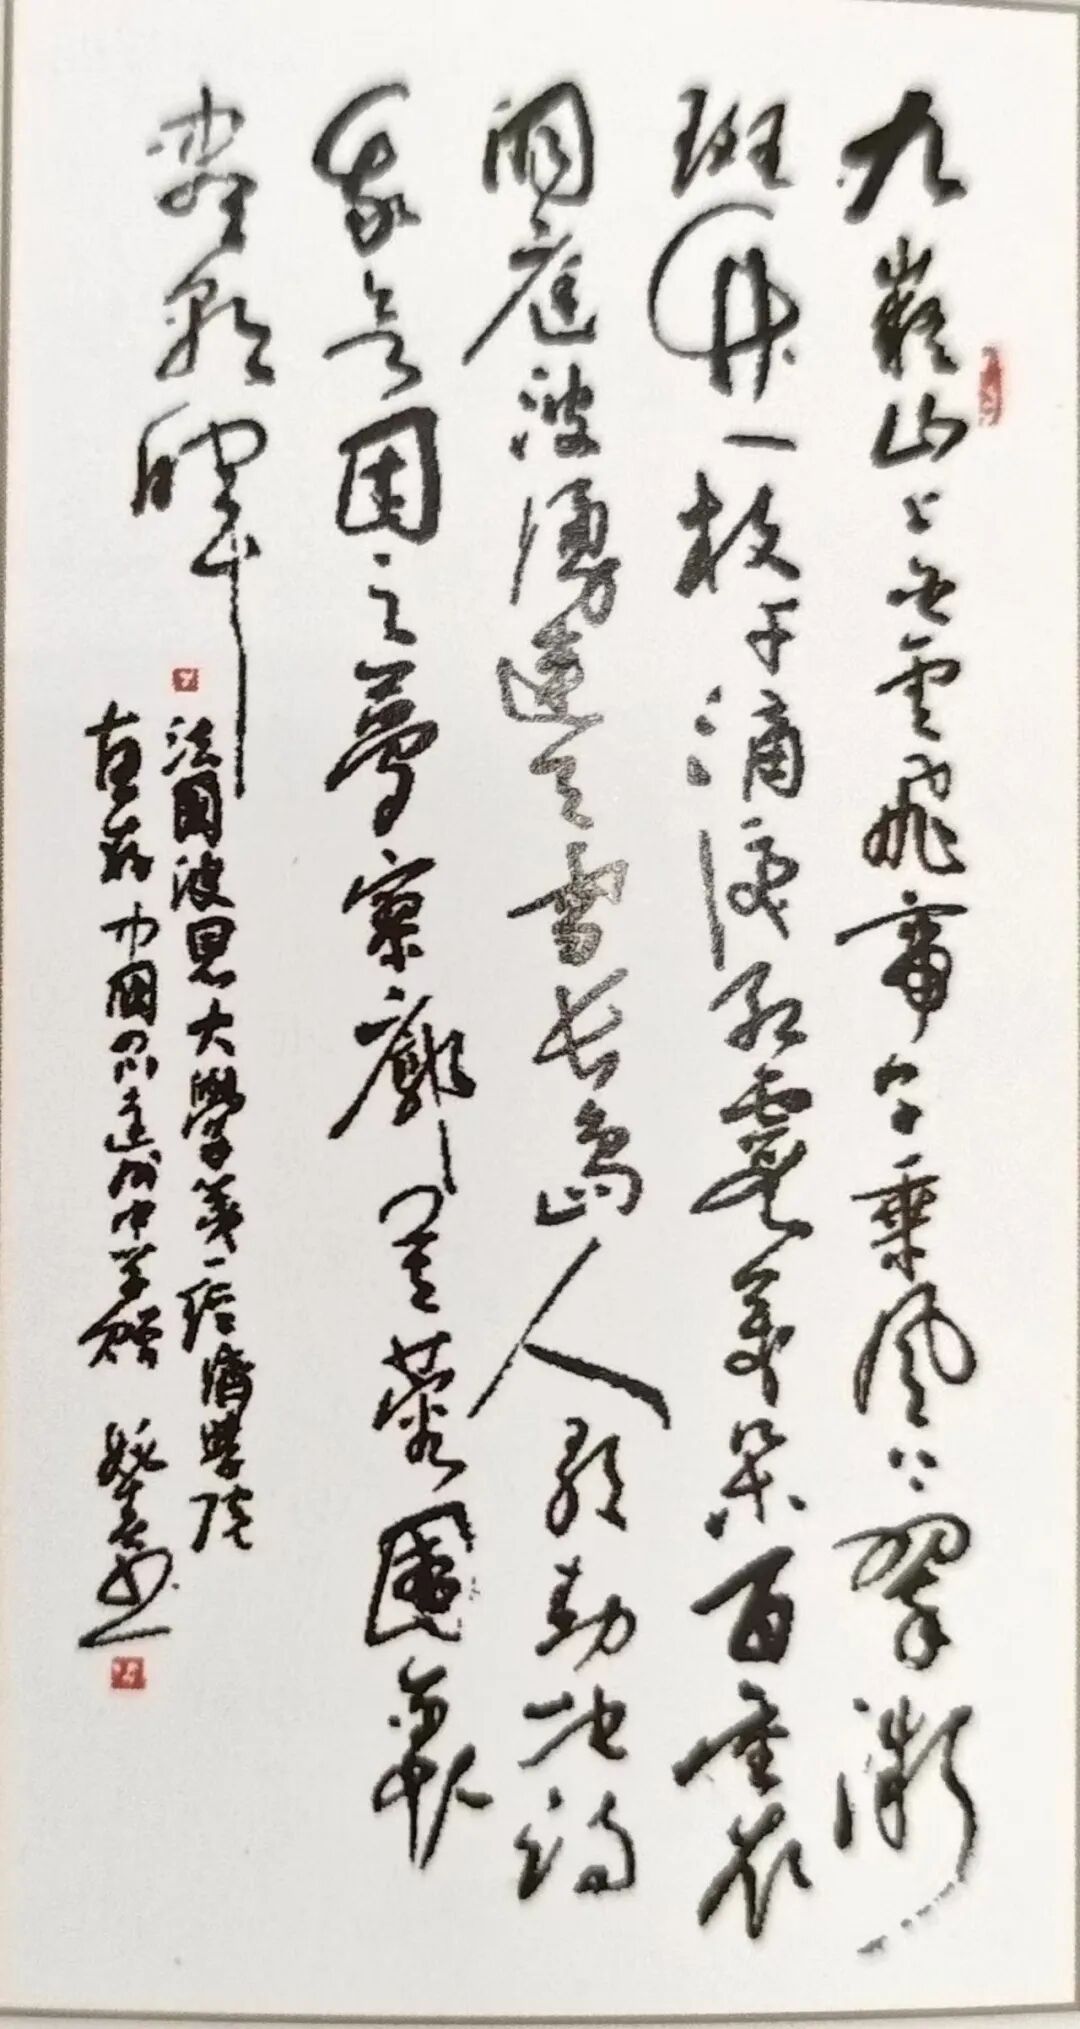 九嶷山上白雲飛帝子乘風下翠微
斑竹一枝千滴淚紅霞萬朵百重衣
洞庭波湧連天雪長島人歌動地詩
我欲因之夢寥廓芙蓉國裏
盡朝暉
法國波恩大學第一經濟學院
中國四川達州中学贈 姚